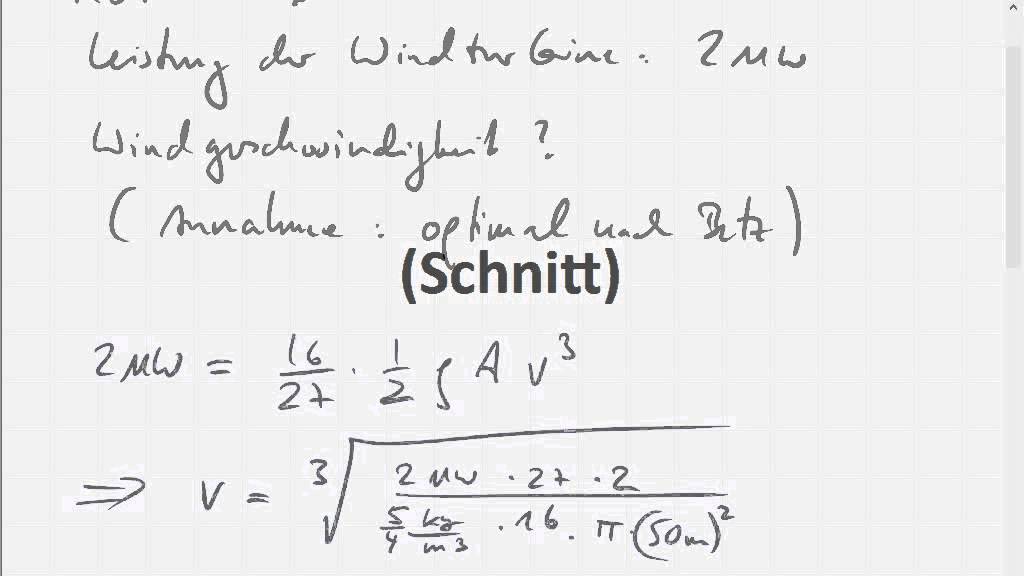 Leistung der Windturbine: 2 MW
Windgeschwindigkeit?
(Annahme: optimal nach Betz)
(Schnitt)
2 MW = 16/27 · 1/2 ρ A v³
⇒ v = ∛(2 MW · 27 · 2 / (5/4 kg/m³ · 16 · π · (50m)²))